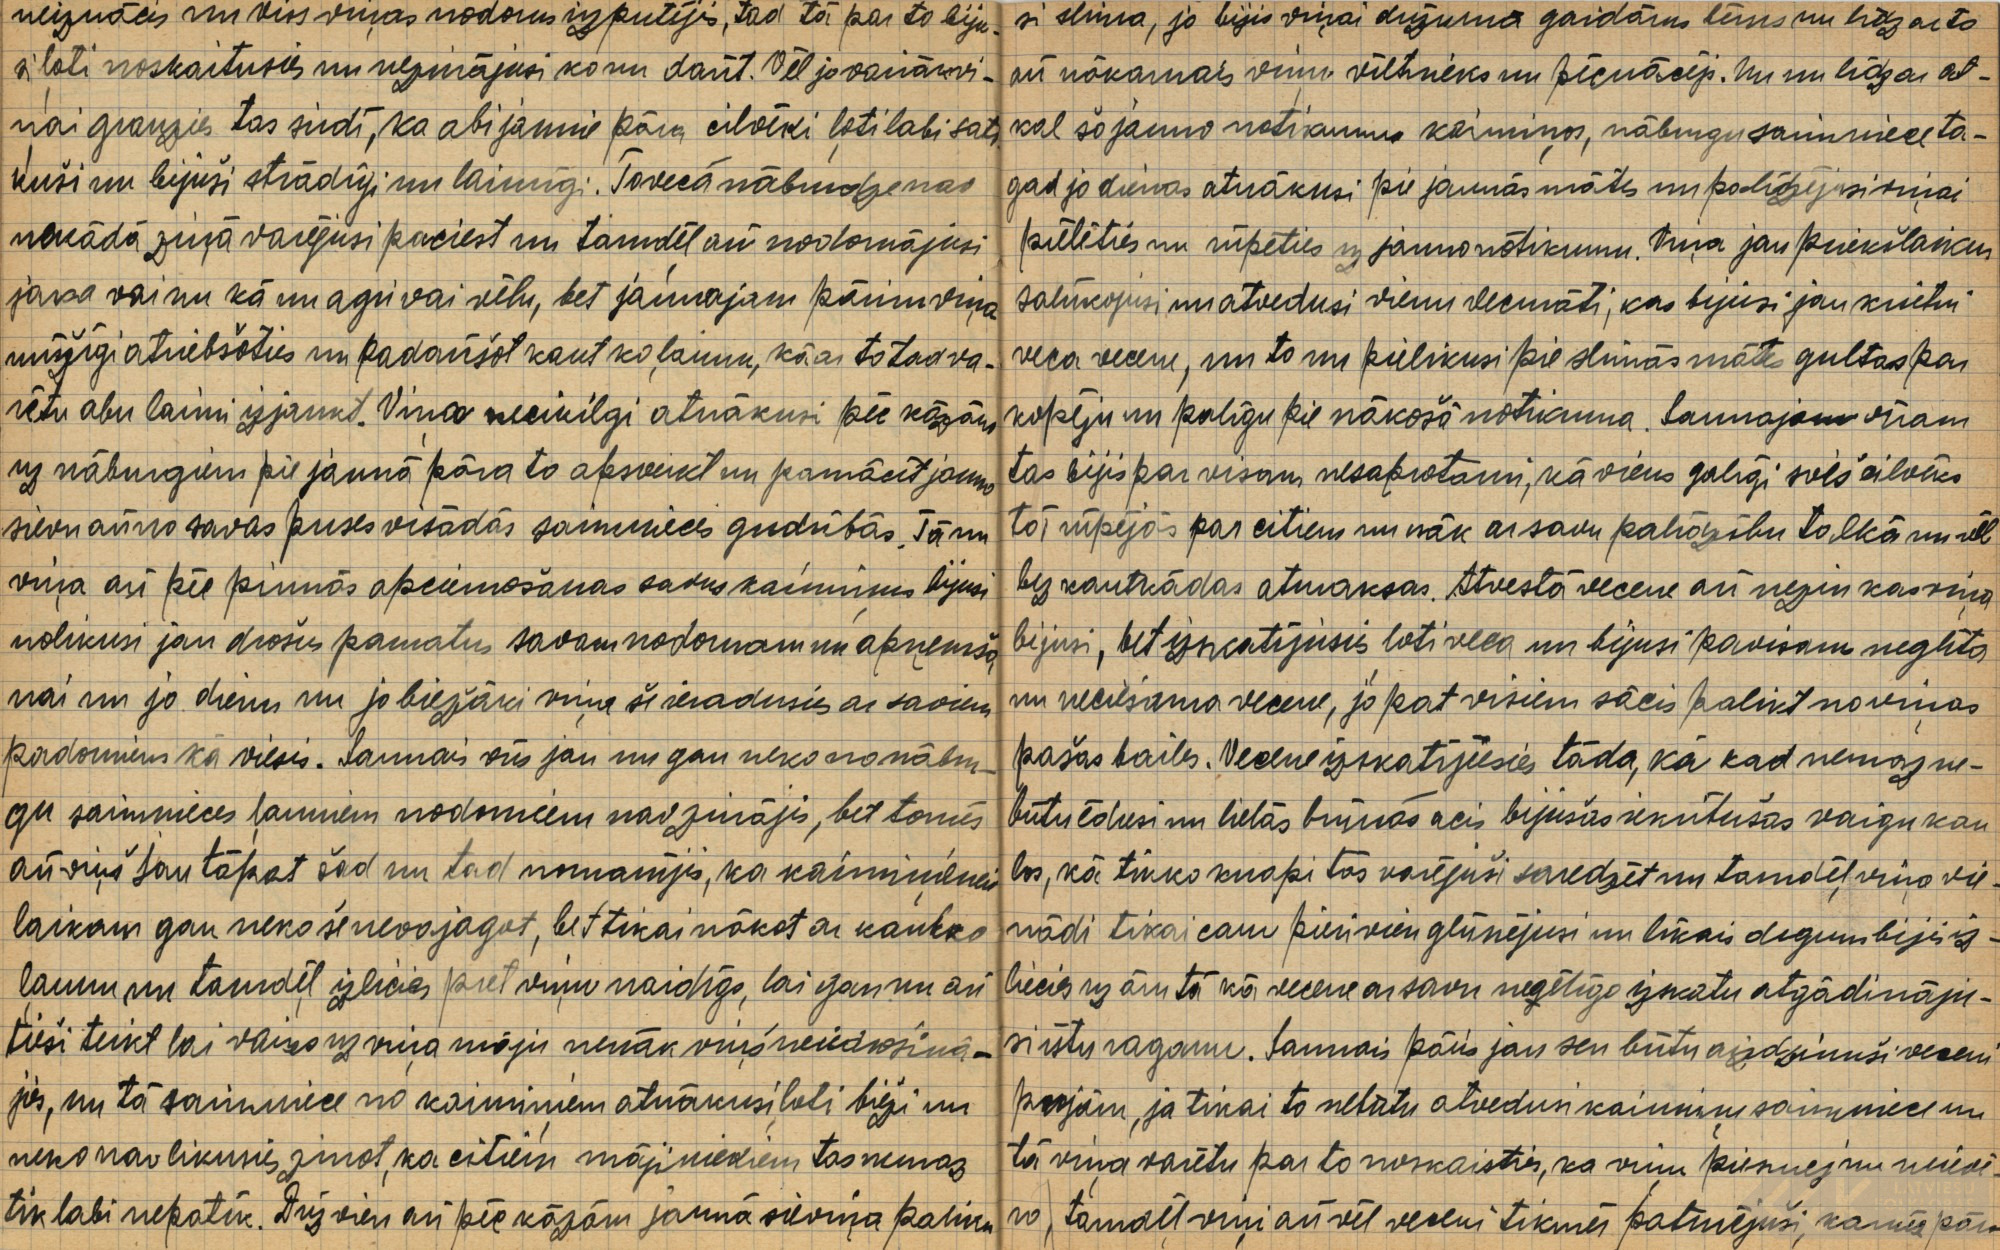 neiznācis un viss viņas nodoms izputējis, tad tā par to biju-
si ļoti noskaitusies un nezinājusi ko nu darīt. Vēl jo vairāk vi-
ņai grauzies tas sirdī, ka abi jaunie pāra cilvēki ļoti labi sati-
kuši un bijuši strādīgi un laimīgi. To vecā nābudzene nav
nekādā ziņā varējusi paciest un tamdēļ arī nodomājusi
ja ka vai nu kā nu agri vai vēlu, bet jaunajam pārim viņa
mūžīgi atriebšoties un padarīšot kaut ko ļaunu, kā ar to tad va-
rētu abu laimi izjaukt. Viņa necik ilgi atnākusi pēc kāzām
uz nāburgiem pie jaunā pāra to apsveikt un pamācīt jauno
sievu arī no savas puses visādās saimnieces gudrībās. Tā nu
viņa arī pēc pirmās apciemošanas savus kaimiņus bijusi
nolikusi jau drošus pamatus savam nodomam un apņemša-
nai un jo dienu nu jo biežāki viņa še ieradusies ar saviem
padomiem kā viesis. Jaunais vīrs jau nu gan neko no nābur-
gu saimnieces ļauniem nodomiem nav zinājis, bet tomēr
arī viņš jau tāpat šad un tad nomanījis, ka kaimiņienei
laikam gan neko še nevajagot, bet tikai nākot ar kaut ko
ļaunu un tamdēļ izlicies pret viņu naidīgs, lai gan nu arī
tieši teikt lai vairs uz viņa māju nenāk viņš neiedrošinā-
jies, un tā saimniece no kaimiņiem atnākusi ļoti bieži un
neko nav likusies zinot, ka citiem mājiniekiem tas nemaz
tik labi nepatīk. Drīz vien arī pēc kāzām jaunā sieviņa paliku-
si slima, jo bijis viņai drīzumā gaidāms bērns nu līdz ar to
arī nākamais viņu vēlnieks un pēcnācējs. Nu nu līdz ar at-
kal šo jauno notikumu kaimiņos, nāburgu saimniece ta-
gad jo dienas atnākusi pie jaunās mātes un palīdzējusi viņai
pūlēties un rūpēties uz jauno notikumu. Viņa jau priekšlaikus
salūkojusi un atvedusi vienu vecmāti, kas bijusi jau krietni
veca vecene, un to nu pielikusi pie slimās mātes gultas par
kopēju un palīgu pie nākošā notikuma. Jaunajam vīram
tas bijis par visam nesaprotami, kā viens galīgi svešs cilvēks
tā rūpējas par citiem un nāk ar savu palīdzību talkā un vēl
bez kautkādas atmaksas. Atvestā vecene arī nezin kas viņa
bijusi, bet izskatījusies ļoti veca un bijusi pavisam neglīta
un neciešama vecene, jo pat visiem sācis palikt no viņas
pašas bailes. Vecene izskatījusies tāda, kā kad nemaz ne-
būtu ēdusi un lielās brūnās acis bijušas iekritušas vaigu kau-
los, kā tikko knapi tās varējuši saredzēt un tamdēļ viņa vie-
nādi tikai caur pieri vien glūnējusi un līkais deguns bijis iz-
liecies uz āru tā kā vecene ar savu negēlīgo izskatu atgādināju-
si īstu raganu. Jaunais pāris jau sen būtu aizdzinuši veceni
projām, ja tikai to nebūtu atvedusi kaimiņu saimniece un
tā viņa varētu par to noskaisties, ka viņu pieņēmēju neievē-
ro, tamdēļ viņi arī vēl veceni tikmēr paturējuši, kamēr pār-